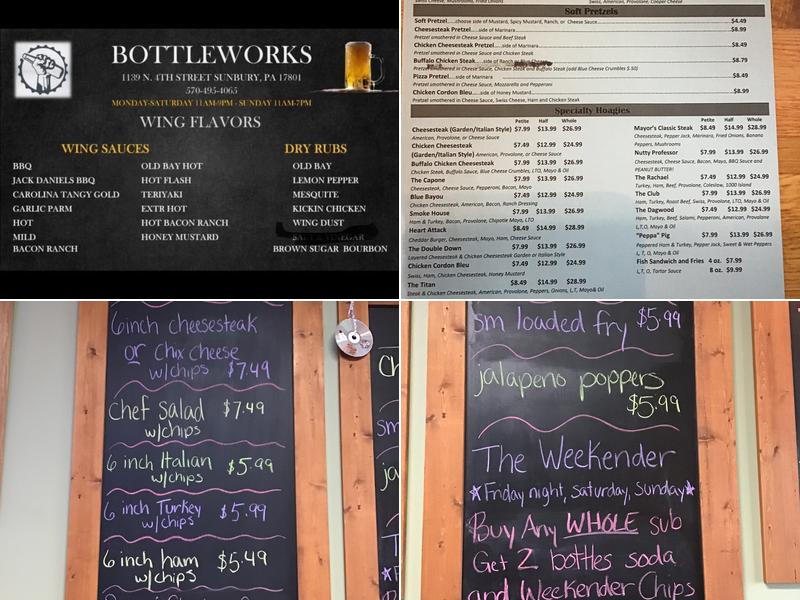 BOTTLEWORKS
1139 N. 4TH STREET SUNBURY, PA 17801
570-495-4065
MONDAY-SATURDAY 11AM-9PM · SUNDAY 11AM-7PM
WING FLAVORS
WING SAUCES
BBQ
JACK DANIELS BBQ
CAROLINA TANGY GOLD
GARLIC PARM
HOT
MILD
BACON RANCH
OLD BAY HOT
HOT FLASH
TERIYAKI
EXTR HOT
HOT BACON RANCH
HONEY MUSTARD
DRY RUBS
OLD BAY
LEMON PEPPER
MESQUITE
KICKIN CHICKEN
WING DUST
BROWN SUGAR BOURBON
Soft Pretzels
Soft Pretzel.....choose side of Mustard, Spicy Mustard, Ranch, or Cheese Sauce $4.49
Cheesesteak Pretzel.....side of Marinara $8.99
Pretzel smothered in Cheese Sauce and Beef Steak
Chicken Cheesesteak Pretzel.....side of Marinara $8.49
Pretzel smothered in Cheese Sauce and Chicken Steak
Buffalo Chicken Steak.....side of Ranch or Blue Cheese $8.79
Pretzel smothered in Cheese Sauce, Chicken Steak and Buffalo Steak (add Blue Cheese Crumbles $.50)
Pizza Pretzel.....side of Marinara $8.49
Pretzel smothered in Marinara, Mozzarella and Pepperoni
Chicken Cordon Bleu.....side of Honey Mustard $8.99
Pretzel smothered in Cheese Sauce, Swiss Cheese, Ham and Chicken Steak
Specialty Hoagies
Petite Half Whole
Cheesesteak (Garden/Italian Style) $7.99 $13.99 $26.99
American, Provolone, or Cheese Sauce
Chicken Cheesesteak $7.49 $12.99 $24.99
(Garden/Italian Style) American, Provolone, or Cheese Sauce
Buffalo Chicken Cheesesteak $7.99 $13.99 $26.99
Chicken Steak, Buffalo Sauce, Blue Cheese Crumbles, LTO, Mayo & Oil
The Capone $7.99 $13.99 $26.99
Cheesesteak, Cheese Sauce, Pepperoni, Bacon, Mayo
Blue Bayou $7.49 $12.99 $24.99
Chicken Cheesesteak, American, Bacon, Ranch Dressing
Smoke House $7.99 $13.99 $26.99
Ham & Turkey, Bacon, Provolone, Chipotle Mayo, LTO
Heart Attack $8.49 $14.99 $28.99
Cheddar Burger, Cheesesteak, Mayo, Ham, Cheese Sauce
The Double Down $7.99 $13.99 $26.99
Layered Cheesesteak & Chicken Cheesesteak Garden or Italian Style
Chicken Cordon Bleu $7.49 $12.99 $24.99
Swiss, Ham, Chicken Cheesesteak, Honey Mustard
The Titan $8.49 $14.99 $28.99
Steak & Chicken Cheesesteak, American, Provolone, Peppers, Onions, L,T, Mayo& Oil
Petite Half Whole
Mayor's Classic Steak $8.49 $14.99 $28.99
Cheesesteak, Pepper Jack, Marinara, Fried Onions, Banana
Peppers, Mushrooms
Nutty Professor $7.99 $13.99 $26.99
Cheesesteak, Cheese Sauce, Bacon, Mayo, BBQ Sauce and
PEANUT BUTTER!
The Rachael $7.49 $12.99 $24.99
Turkey, Ham, Beef, Provolone, Coleslaw, 1000 Island
The Club $7.99 $13.99 $26.99
Ham, Turkey, Roast Beef, Swiss, Provolone, LTO, Mayo & Oil
The Dagwood $7.49 $12.99 $24.99
Ham, Turkey, Beef, Salami, Pepperoni, American, Provolone
L,T,O, Mayo & Oil
"Peppa" Pig $7.99 $13.99 $26.99
Peppered Ham & Turkey, Pepper Jack, Sweet & Wet Peppers
L, T, O, Mayo & Oil
Fish Sandwich and Fries 4 oz. $7.99
L, T, O, Tartar Sauce 8 oz. $9.99
6inch cheesesteak
or Chix Cheese
w/chips $7.49
Chef Salad $7.49
w/chips
6 inch Italian $5.99
w/chips
6 inch Turkey $5.99
w/chips
6 inch ham $5.49
w/chips
sm loaded fry $5.99
jalapeno poppers
$5.99
The Weekender
★Friday night, saturday, Sunday★
Buy Any WHOLE sub
Get 2 bottles soda
and Weekender Chips